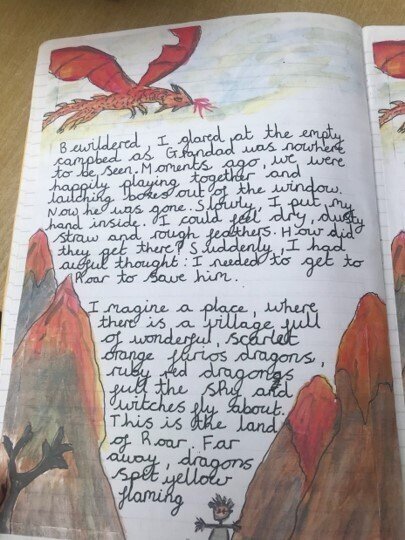 Bewildered, I glared at the empty
campbed as Grandad was nowhere
to be seen. Moments ago, we were
happily playing together and
lauching boxes out of the window.
Now he was gone. Slowly, I put my
hand inside. I could feel dry, dusty
straw and rough feathers. How did
they get there? Suddenly, I had
awful thought: I needed to get to
Roar to save him.
Imagine a place, where
there is a village full
of wonderful, scarlet
orange furios dragons,
ruby red dragons
full the sky and
witches fly about.
This is the land
of Roar. Far
away, dragons
spit yellow
flaming